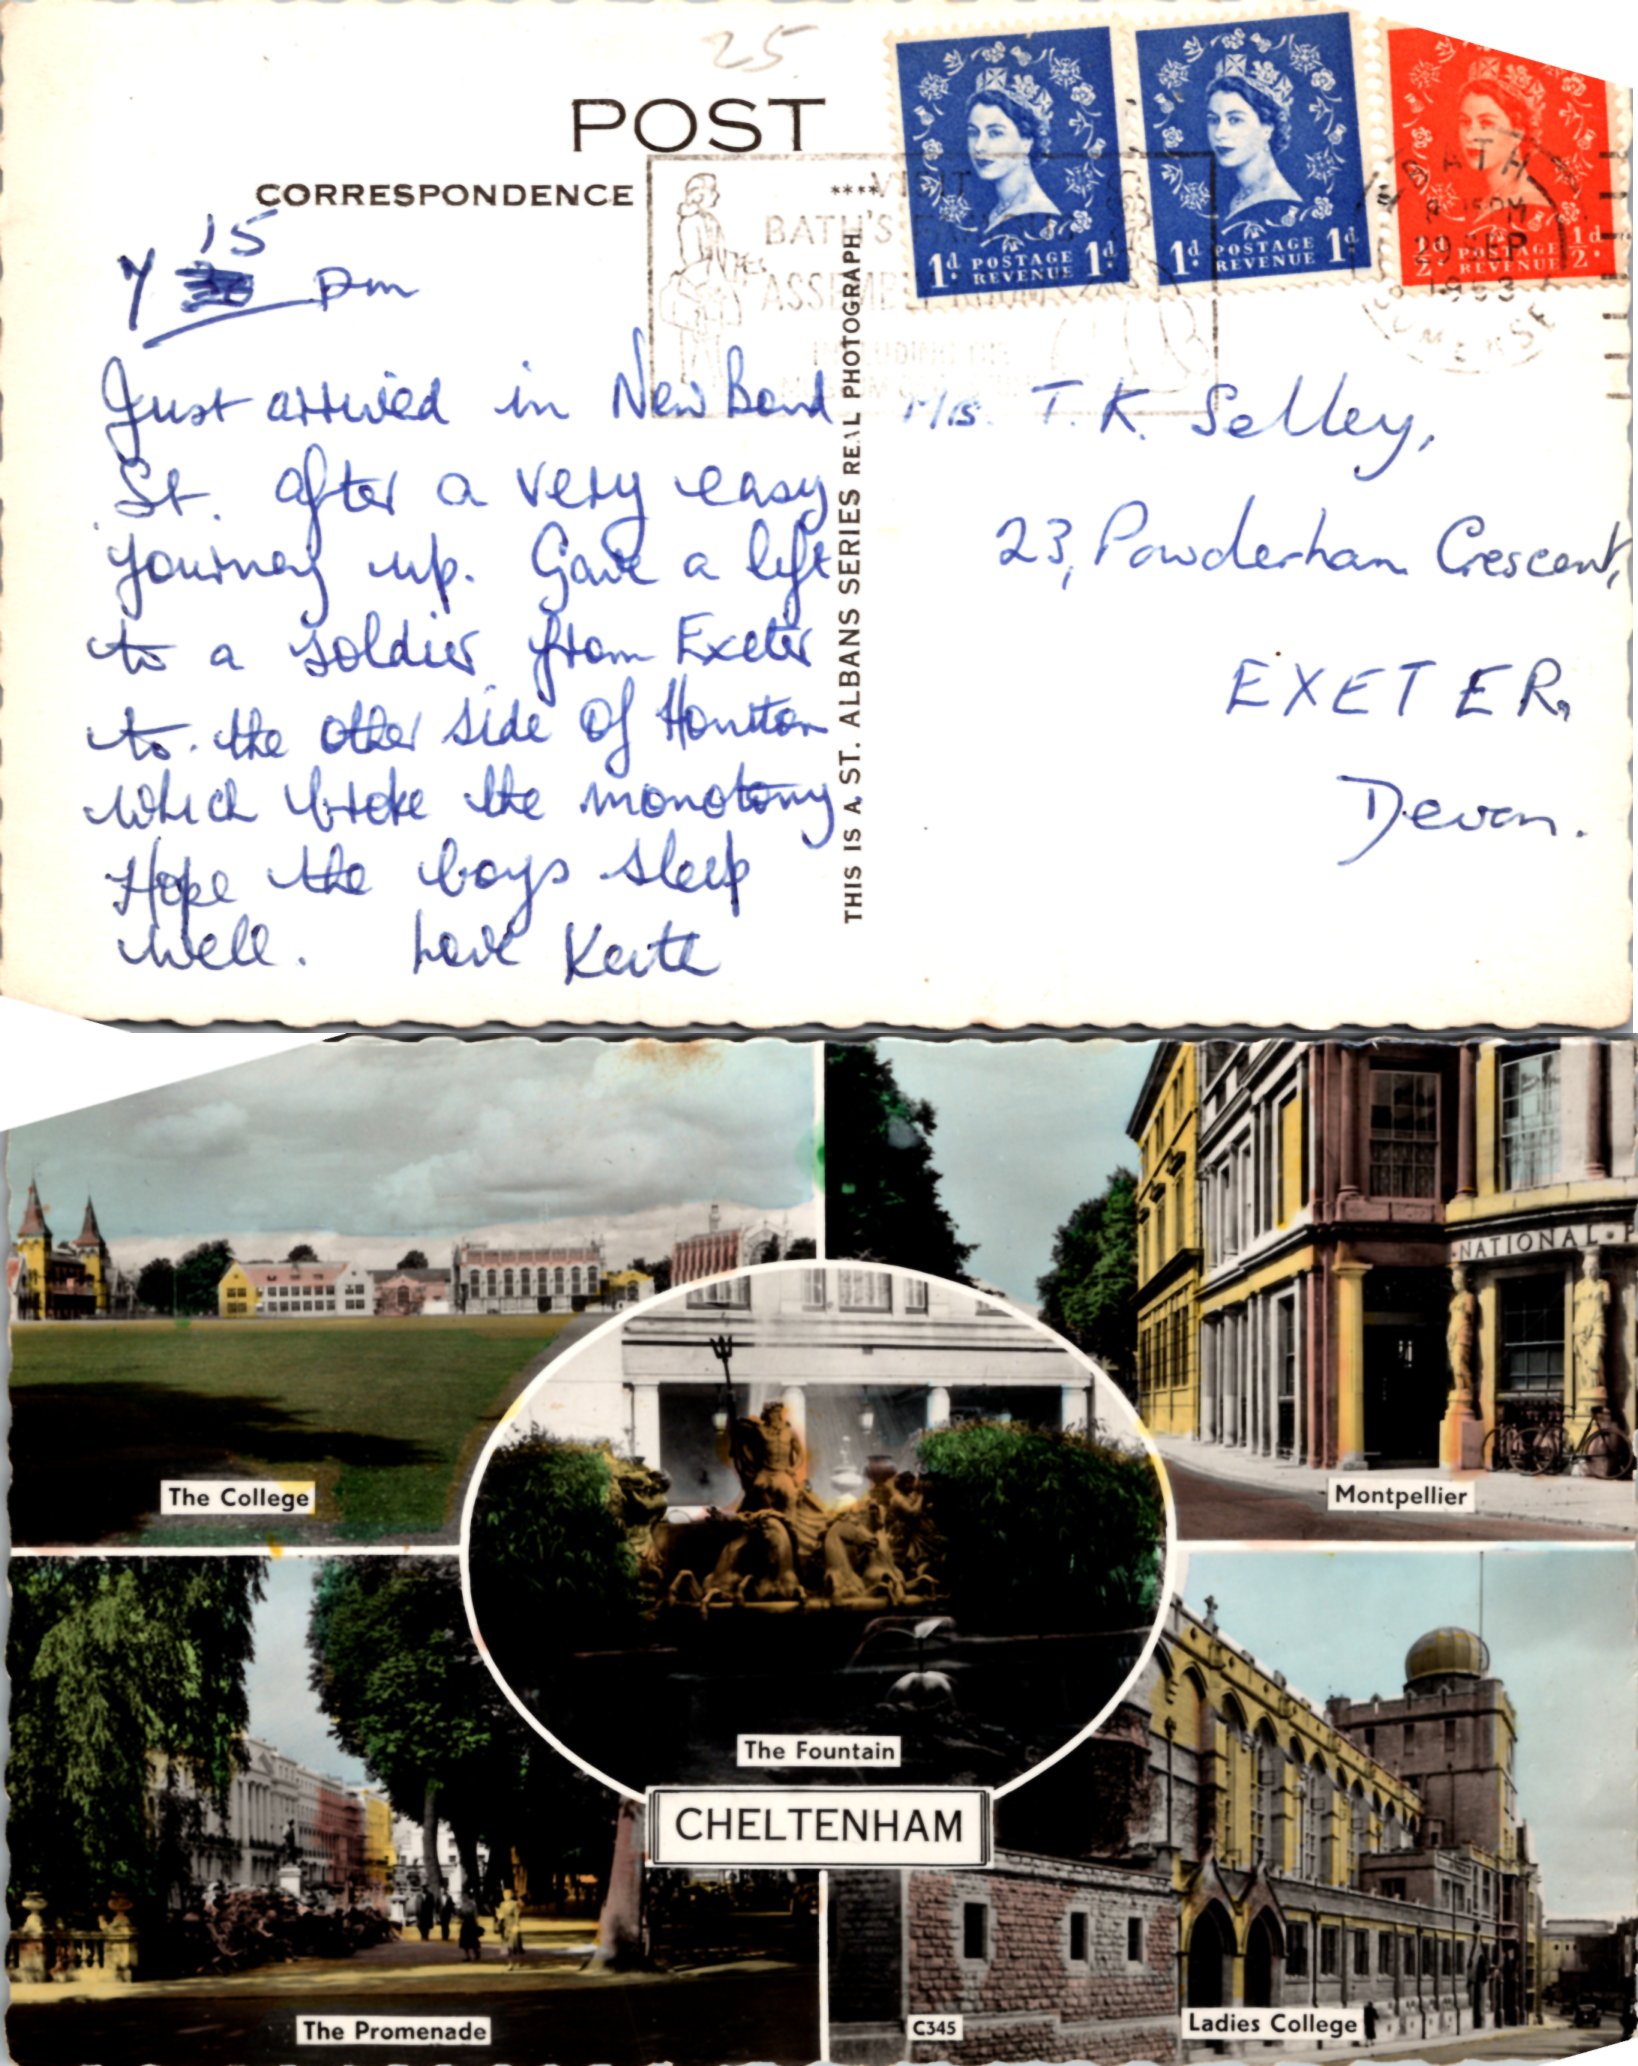 25
POST
CORRESPONDENCE
****
VISIT
BATH'S
ASSEMBLY ROOMS
INCLUDING THE
MUSEUM OF
1d. POSTAGE REVENUE 1d.
1d. POSTAGE REVENUE 1d.
POSTAGE REVENUE 1/2d.
BATH
8 15PM
29 SEP
1963
SOMERSET
7 15 pm
Just arrived in New Bond
St. after a very easy
journey up. Gave a lift
to a soldier from Exeter
to the other side of Honiton
which broke the monotony.
Hope the boys sleep
well. Love Keith
THIS IS A ST. ALBANS SERIES REAL PHOTOGRAPH
Mrs. T. K. Selley,
23, Powderham Crescent,
EXETER,
Devon.
NATIONAL · P
The College
Montpellier
The Fountain
CHELTENHAM
The Promenade
C345
Ladies College